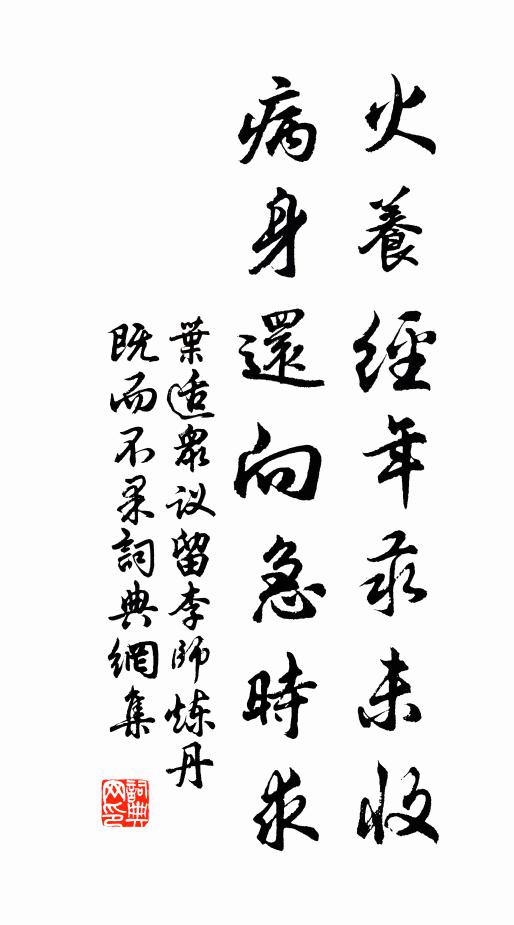 火養經年汞未收
病身還向急時求
葉适眾议留李師炼丹
既而不果詞典網集
詞典
网印